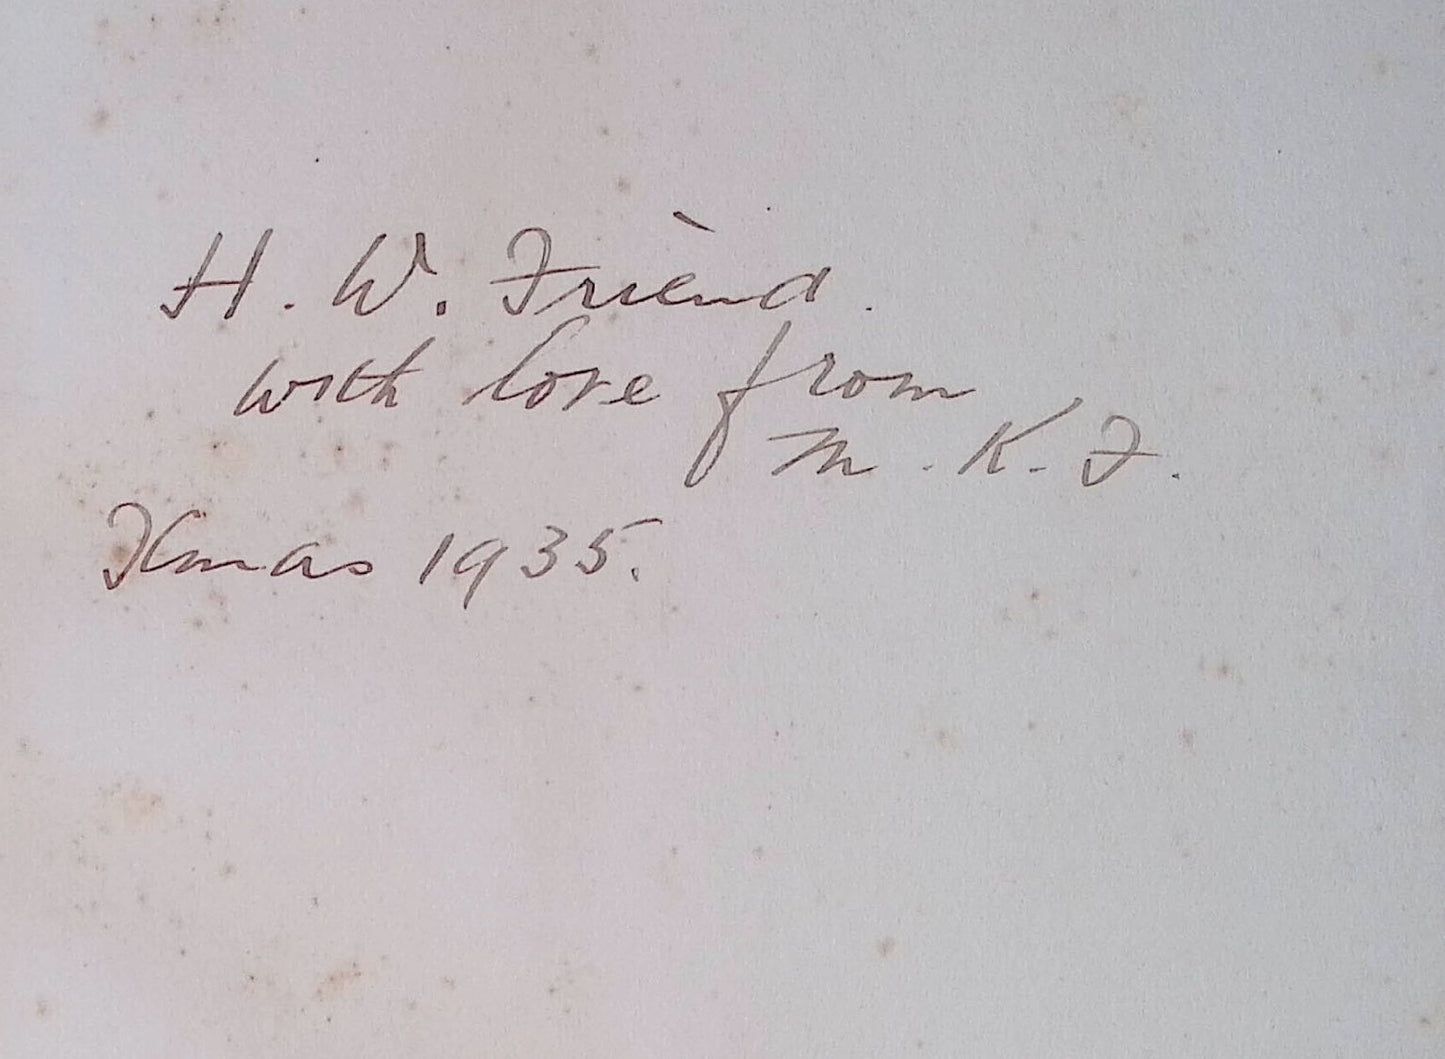 H. W. Friend.
with love from
M. K. F.
Xmas 1935.